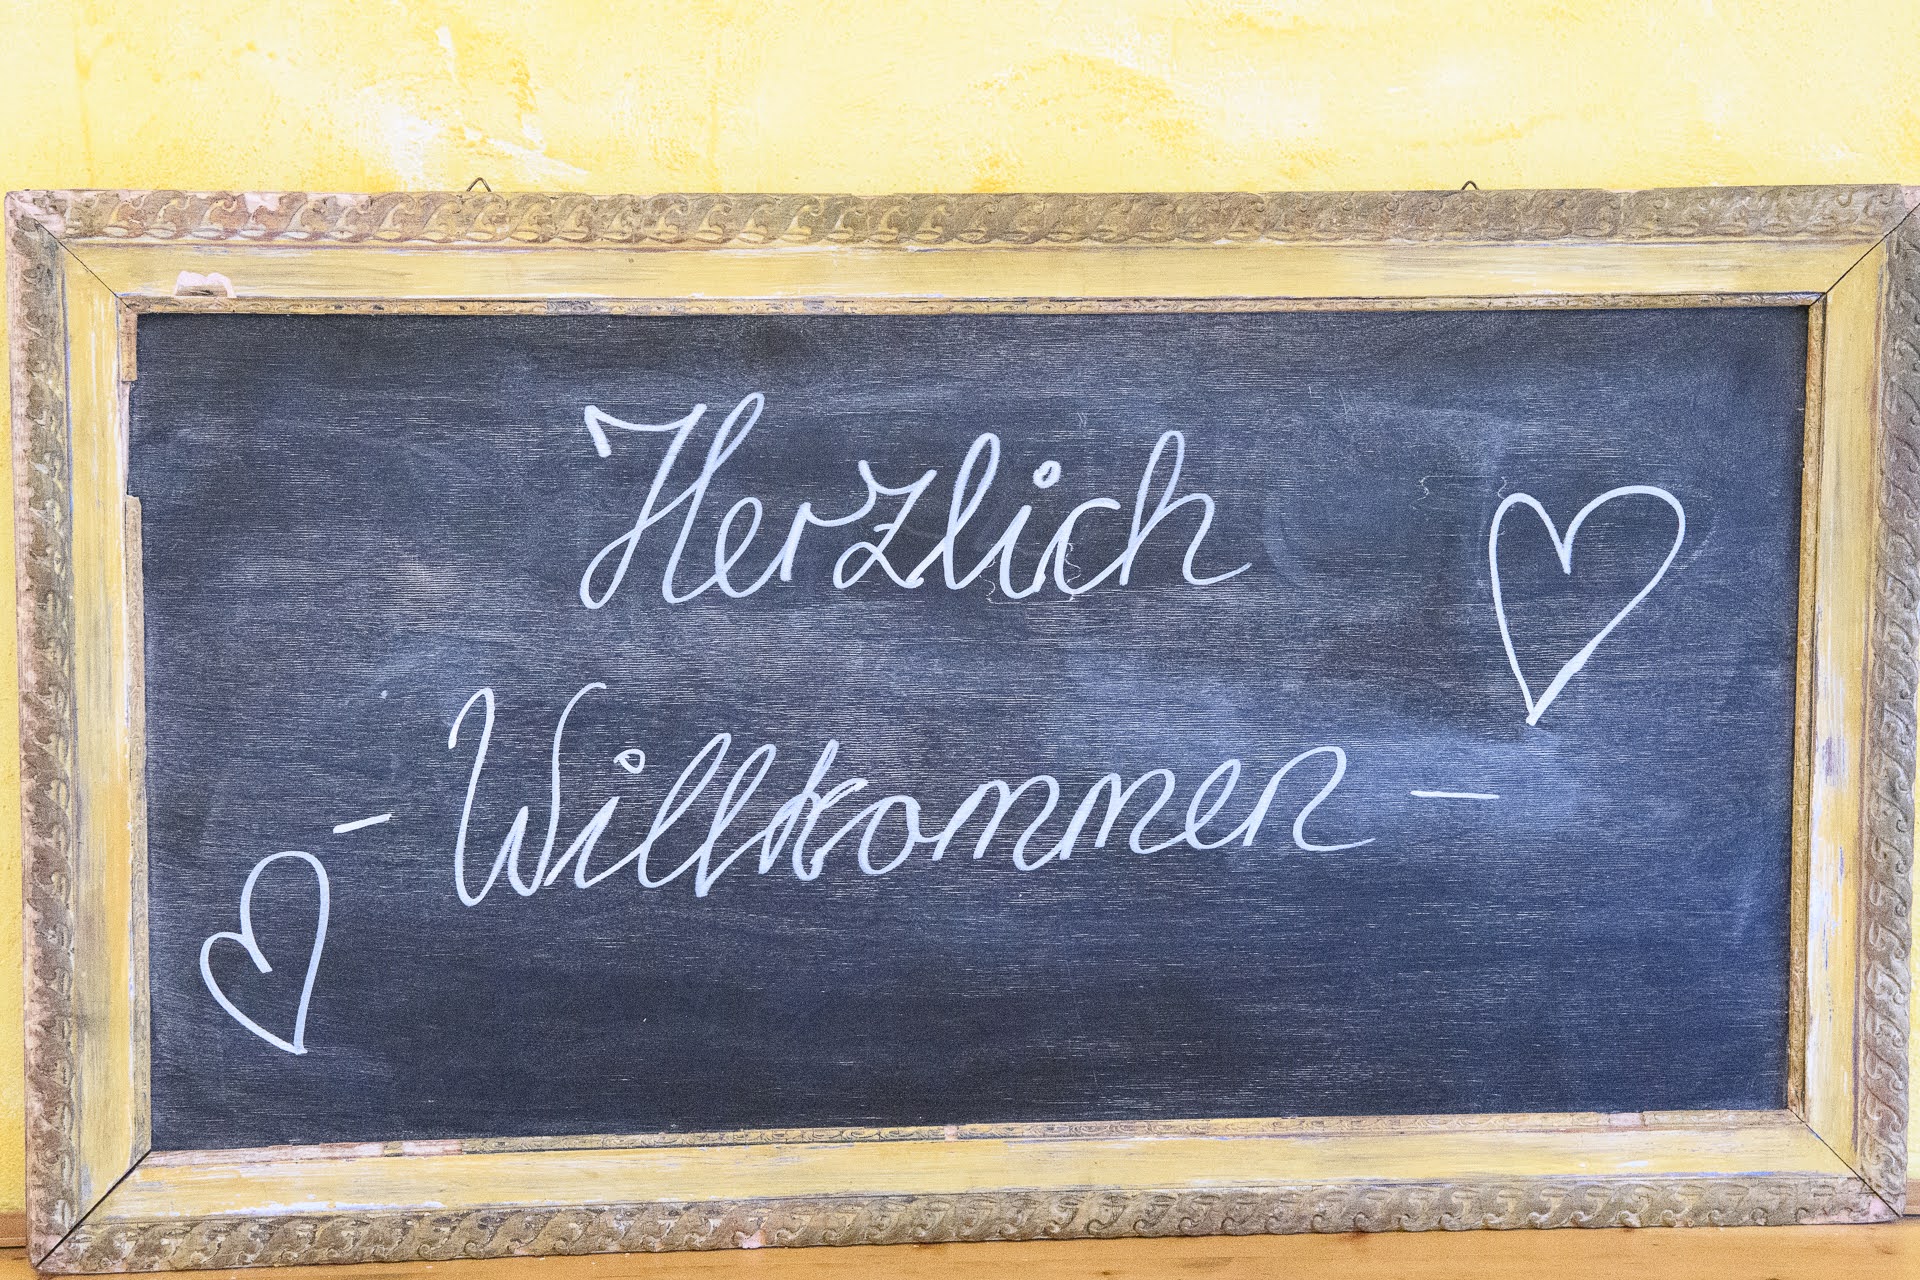 Herzlich
- Willkommen -